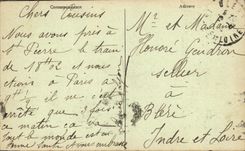 Correspondance
Adresse
Chers Cousins
Nous avons pris à
St Pierre le train
de 18h02 et nous
étions à Paris à
il ne s'est
arrêté que 3 fois
ce matin ça va
tout le monde est
Mr et Madame
Honoré Gendron
sellier
à
Bléré
Indre et Loire